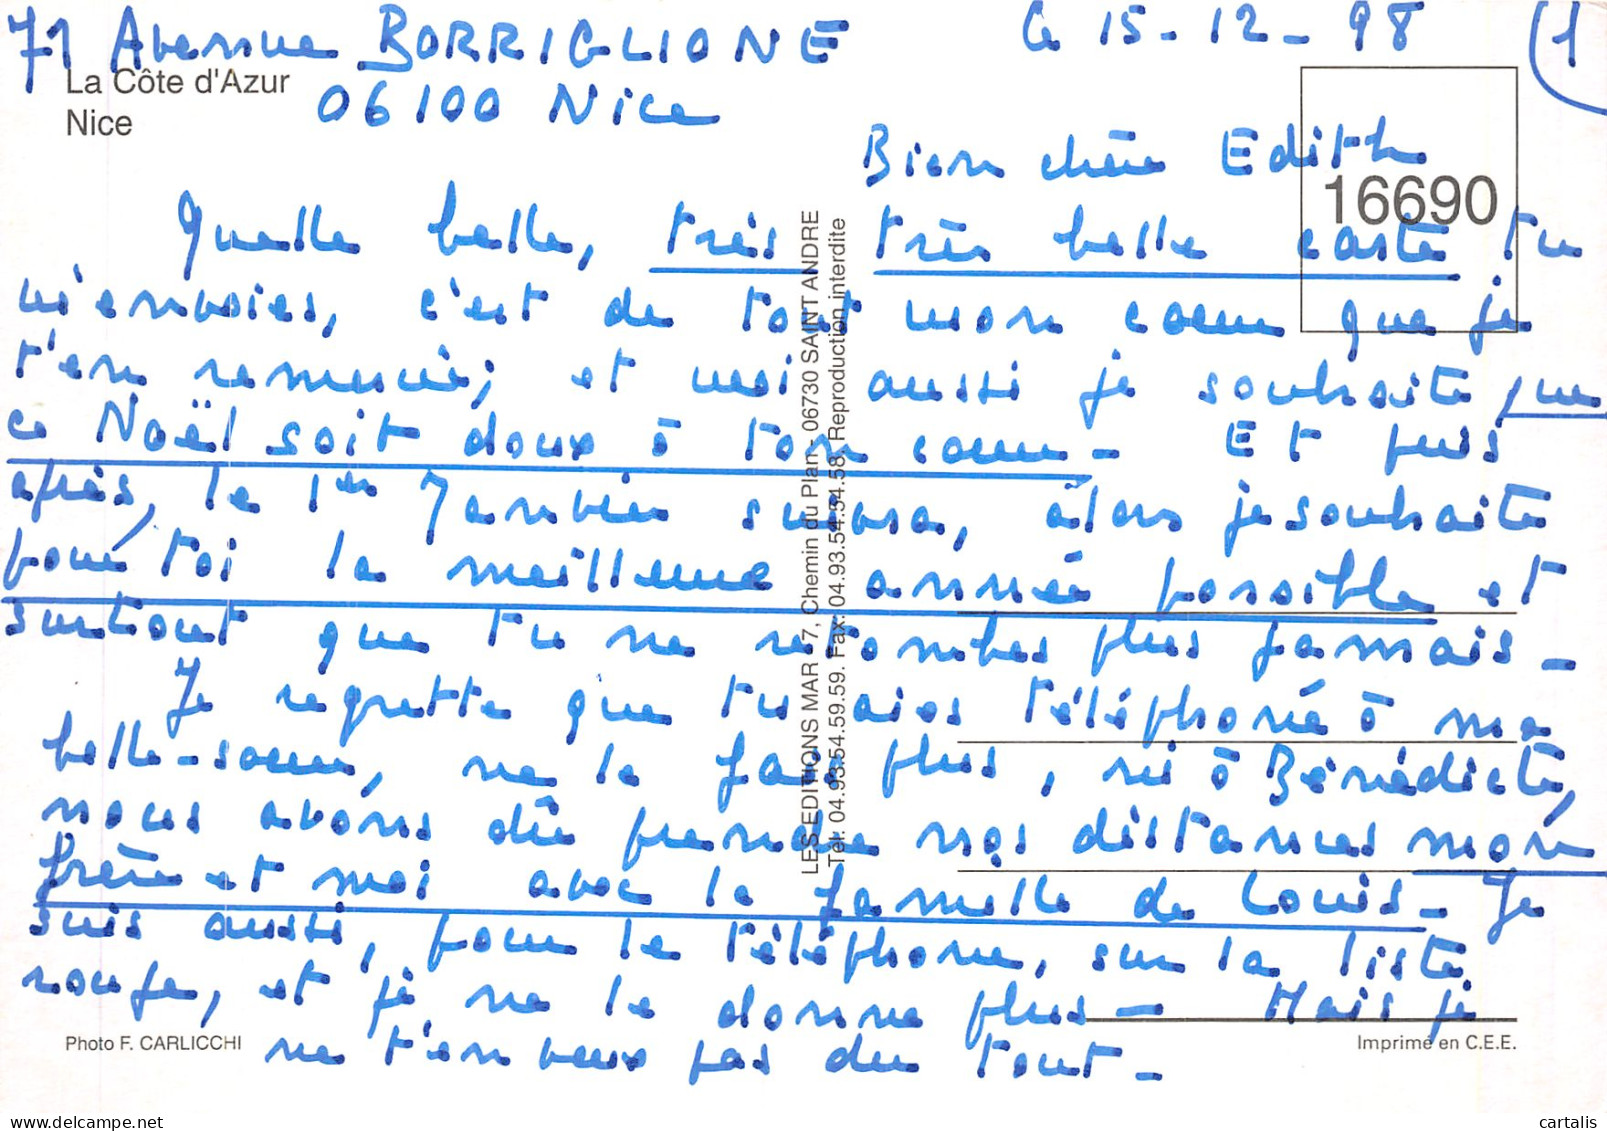 71 Avenue BORRIGLIONE
Le 15-12-98 (1
La Côte d'Azur
Nice
06100 Nice
Bien chère Edith
16690
Quelle belle, très très belle carte tu
m'envoies, c'est de tout mon coeur que je
t'en remercie; et moi aussi je souhaite que
ce Noël soit doux à ton coeur - Et puis
après, le 1er Janvier suivra, alors je souhaite
pour toi la meilleure année possible et
surtout que tu ne retombes plus jamais -
Je regrette que tu aies téléphoné à ma
belle-soeur, ne le fais plus, ni à Bénédicte,
nous avons dû prendre nos distances mon
frère et moi avec la famille de Louis - Je
suis aussi, pour le téléphone, sur la liste
rouge, et je ne le donne plus - Mais je
ne t'en veux pas du tout -
LES EDITIONS MAR - 7, Chemin du Plan - 06730 SAINT ANDRE
Tél: 04.93.54.59.59. Fax: 04.93.54.54.58. Reproduction interdite
Photo F. CARLICCHI
Imprimé en C.E.E.
cartalis
https://www.delcampe.net